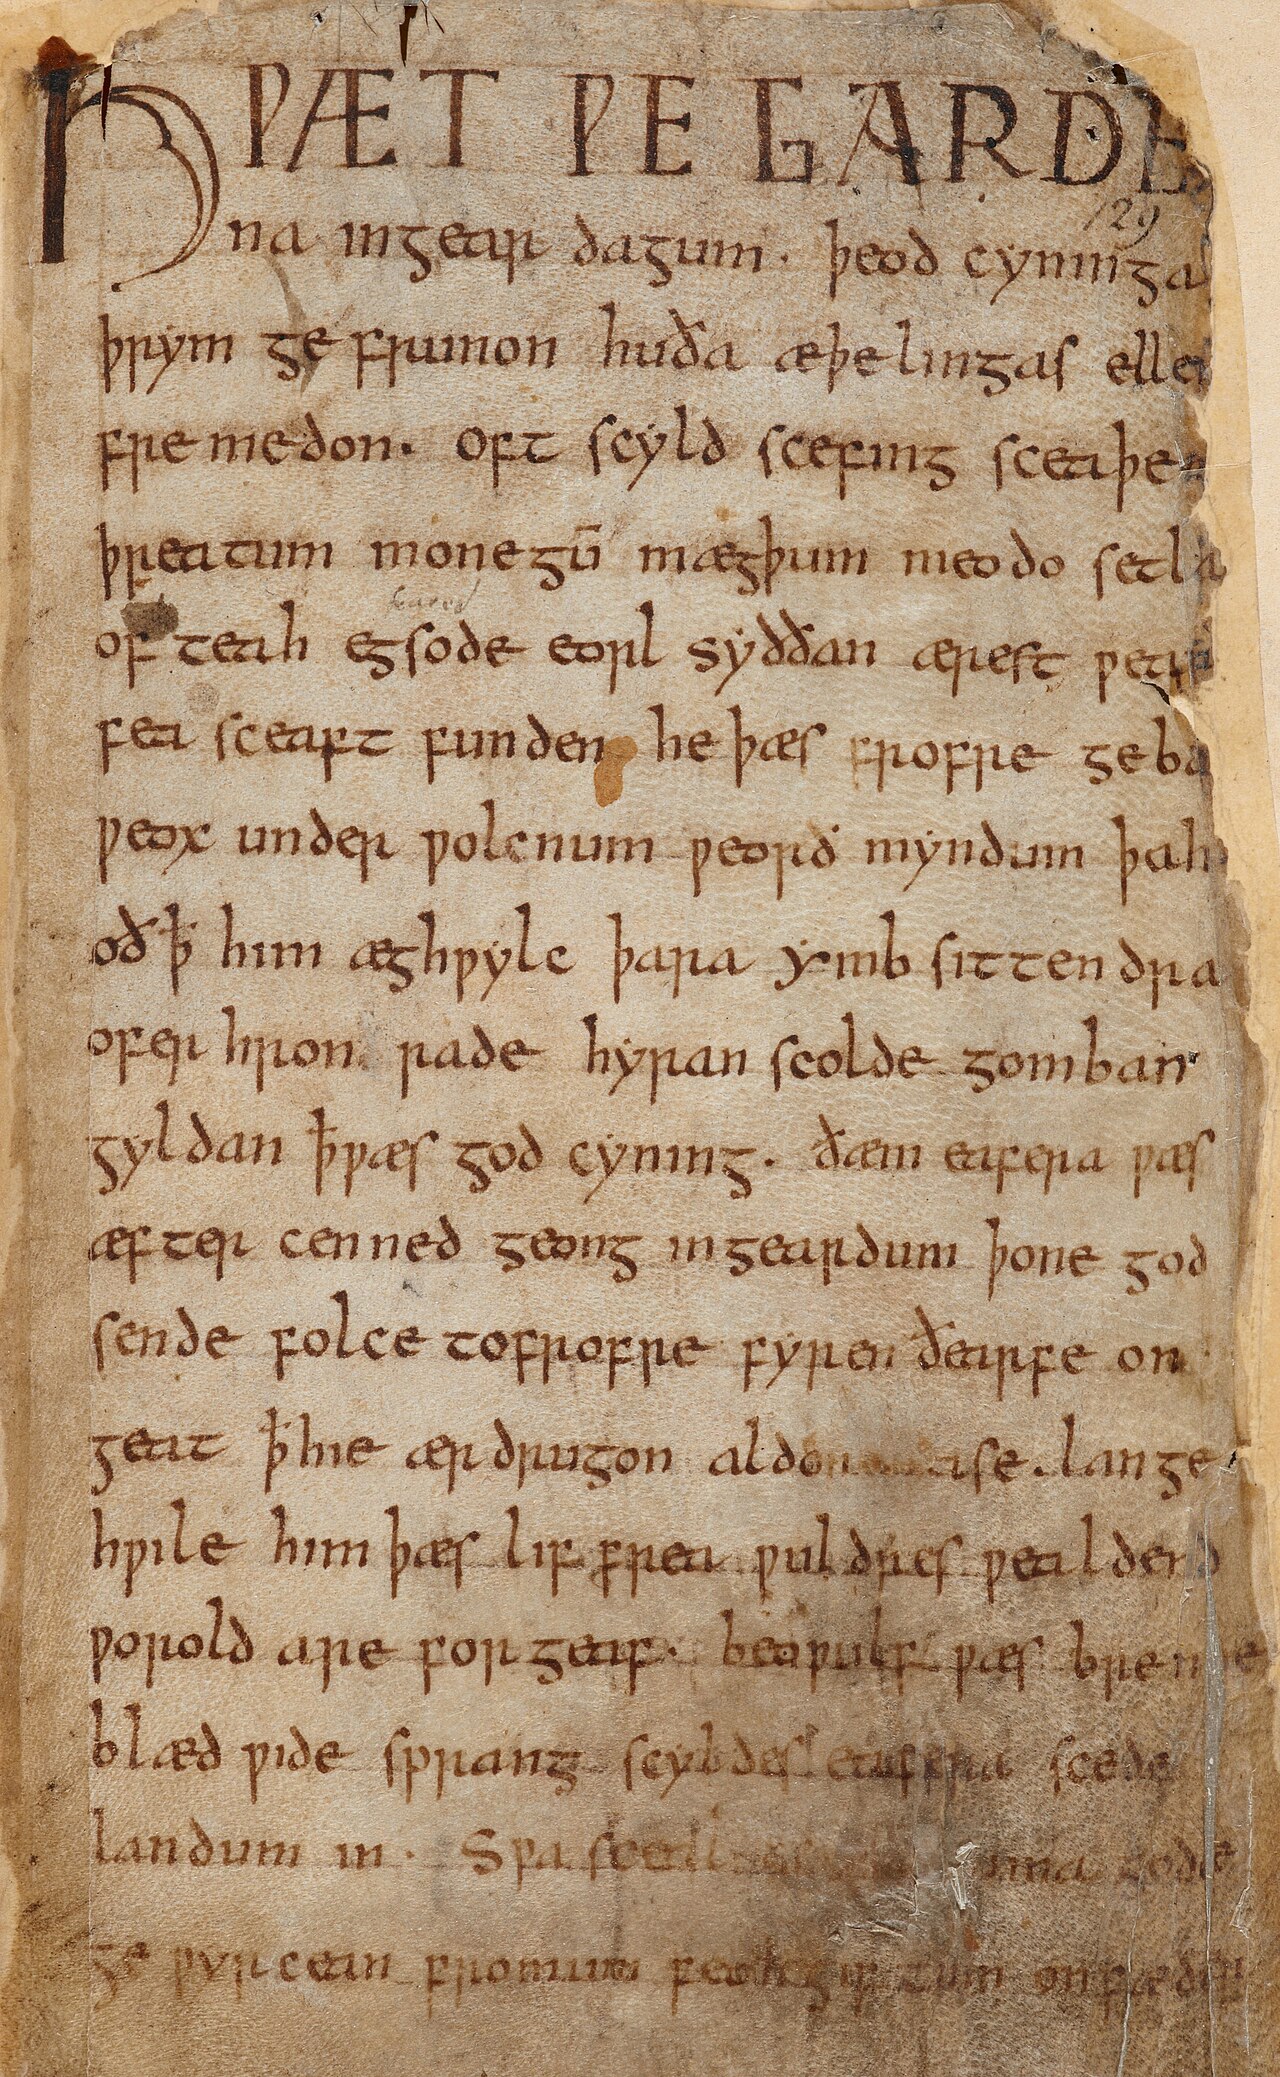 HǷÆT ǷE GARDE
na ingear dagum. þeod cyninga
þrym ge frunon huða æþelingas elle
fre medon. oft scyld scefing sceaþe
þreatum monegū mægþum meodo setla
of teah egsode eorl syððan ærest ƿear
fea sceaft funden he þæs frofre geba
ƿeox under ƿolcnum ƿeorð myndum þah
oð ꝥ him æghƿylc þara ymb sittendra
ofer hron rade hyran scolde gomban
gyldan ꝥƿæs god cyning. ðæm eafera ƿæs
æfter cenned geong ingeardum þone god
sende folce tofrofre fyren ðearfe on
geat ꝥhie ærdrugon aldor ase. lange
hƿile him þæs lif frea ƿuldres ƿealdend
ƿorold are for geaf. beoƿulf ƿæs breme
blæd ƿide sprang scyldes eafera scede
landum in. Sƿa sceal guma gode
ge ƿyrcean fromum feoh giftum onfæder
129